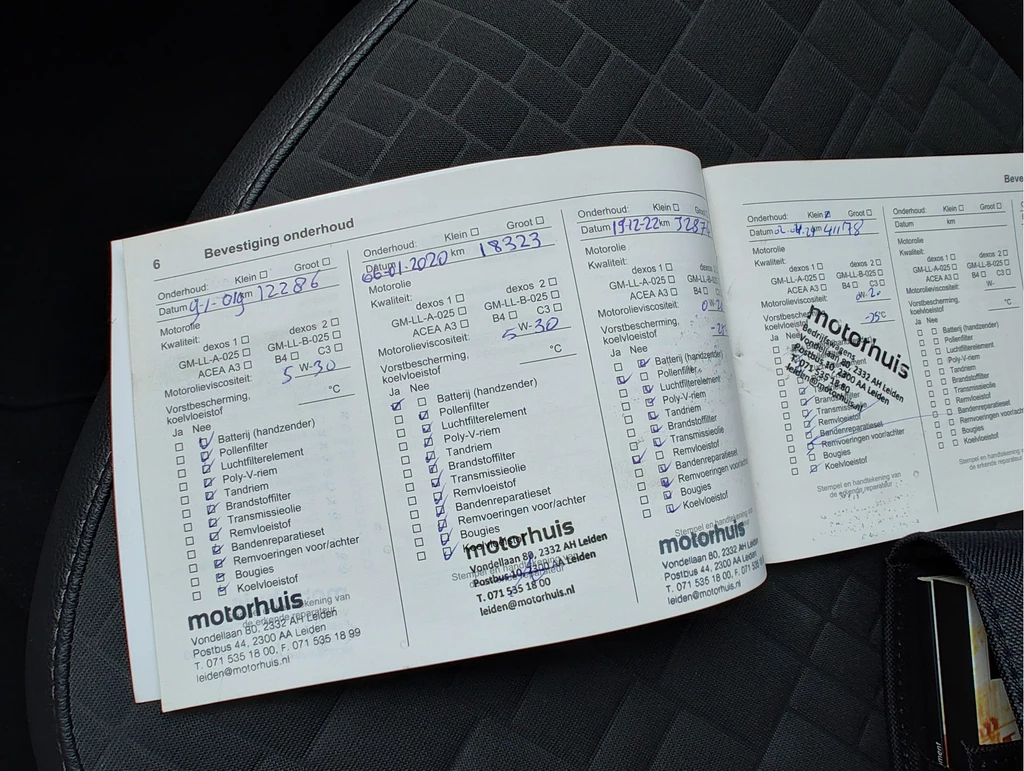 6
Bevestiging onderhoud
Onderhoud: Klein Groot
Datum 9-1-019 km 12286
Motorolie
Kwaliteit: dexos 1 dexos 2
GM-LL-A-025 GM-LL-B-025
ACEA A3 B4 C3
Motorolieviscositeit: 5 W-30
Vorstbescherming, koelvloeistof °C
Ja Nee
Batterij (handzender)
Pollenfilter
Luchtfilterelement
Poly-V-riem
Tandriem
Brandstoffilter
Transmissieolie
Remvloeistof
Bandenreparatieset
Remvoeringen voor/achter
Bougies
Koelvloeistof
motorhuis
Vondellaan 80, 2332 AH Leiden
Postbus 44, 2300 AA Leiden
T. 071 535 18 00, F. 071 535 18 99
leiden@motorhuis.nl
Onderhoud: Klein Groot
Datum 06-01-2020 km 18323
Motorolie
Kwaliteit: dexos 1 dexos 2
GM-LL-A-025 GM-LL-B-025
ACEA A3 B4 C3
Motorolieviscositeit: 5 W-30
Vorstbescherming, koelvloeistof °C
Ja Nee
Batterij (handzender)
Pollenfilter
Luchtfilterelement
Poly-V-riem
Tandriem
Brandstoffilter
Transmissieolie
Remvloeistof
Bandenreparatieset
Remvoeringen voor/achter
Bougies
motorhuis
Vondellaan 80, 2332 AH Leiden
Postbus 2300 AA Leiden
T. 071 535 18 00
leiden@motorhuis.nl
Onderhoud: Klein Groot
Datum 19-12-22 km 3287
Motorolie
Kwaliteit: dexos 1 dexos 2
GM-LL-A-025 GM-LL-B-025
ACEA A3 B4 C3
Motorolieviscositeit: 0 W-
Vorstbescherming, koelvloeistof
Ja Nee
Batterij (handzender)
Pollenfilter
Luchtfilterelement
Poly-V-riem
Tandriem
Brandstoffilter
Transmissieolie
Remvloeistof
Bandenreparatieset
Remvoeringen voor/achter
Bougies
Koelvloeistof
Stempel en handtekening van
motorhuis
Vondellaan 80, 2332 AH Leiden
Postbus 44, 2300 AA Leiden
T. 071 535 18 00, F. 071 535
leiden@motorhuis.nl
Onderhoud: Klein Groot
Datum km 41178
Motorolie
Kwaliteit: dexos 1 dexos 2
GM-LL-A-025 GM-LL-B-025
ACEA A3 B4 C3
Motorolieviscositeit: 0 W-20
Vorstbescherming, koelvloeistof °C
Ja Nee
motorhuis
Bedrijfswagens
Vondellaan 80, 2332 AH Leiden
2300 AA Leiden
T. 071 535 18 80
leiden@motorhuis.nl
Transmissieolie
Remvloeistof
Bandenreparatieset
Remvoeringen voor/achter
Bougies
Koelvloeistof
Stempel en handtekening van
de erkende reparateur
Beve
Onderhoud: Klein Groot
Datum km
Motorolie
Kwaliteit: dexos 1 dexos 2
GM-LL-A-025 GM-LL-B-025
ACEA A3 B4 C3
Motorolieviscositeit: W-
Vorstbescherming, koelvloeistof °C
Ja Nee
Batterij (handzender)
Pollenfilter
Luchtfilterelement
Poly-V-riem
Tandriem
Brandstoffilter
Transmissieolie
Remvloeistof
Bandenreparatieset
Remvoeringen voor/achter
Bougies
Koelvloeistof
Stempel en handtekening van